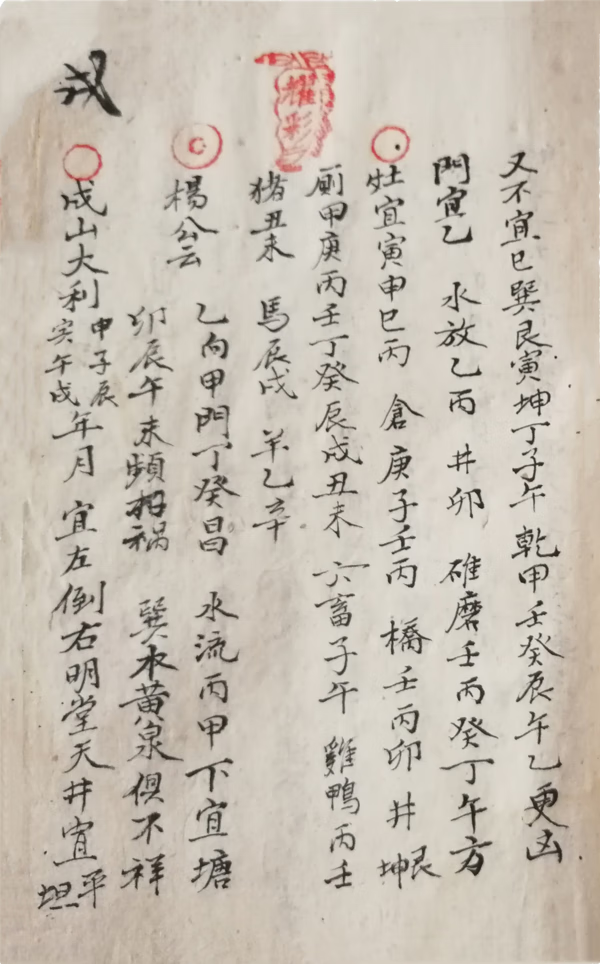 又不宜巳巽艮寅坤丁子午 乾甲壬癸辰午乙更凶
門宜乙 水放乙丙 井卯 碓磨壬丙癸丁午方
灶宜寅申巳丙 倉庚子壬丙 橋壬丙卯 井 艮坤
厠甲庚丙壬丁癸辰戌丑未 六畜子午 雞鴨丙壬
猪丑未 馬辰戌 羊乙辛
耀彩
楊公云 乙向甲門丁癸昌 水流丙甲下宜塘
卯辰午未頻招禍 巽水黃泉俱不祥
戌
戌山大利 申子辰 寅午戌 年月 宜左倒右明堂天井宜平坦